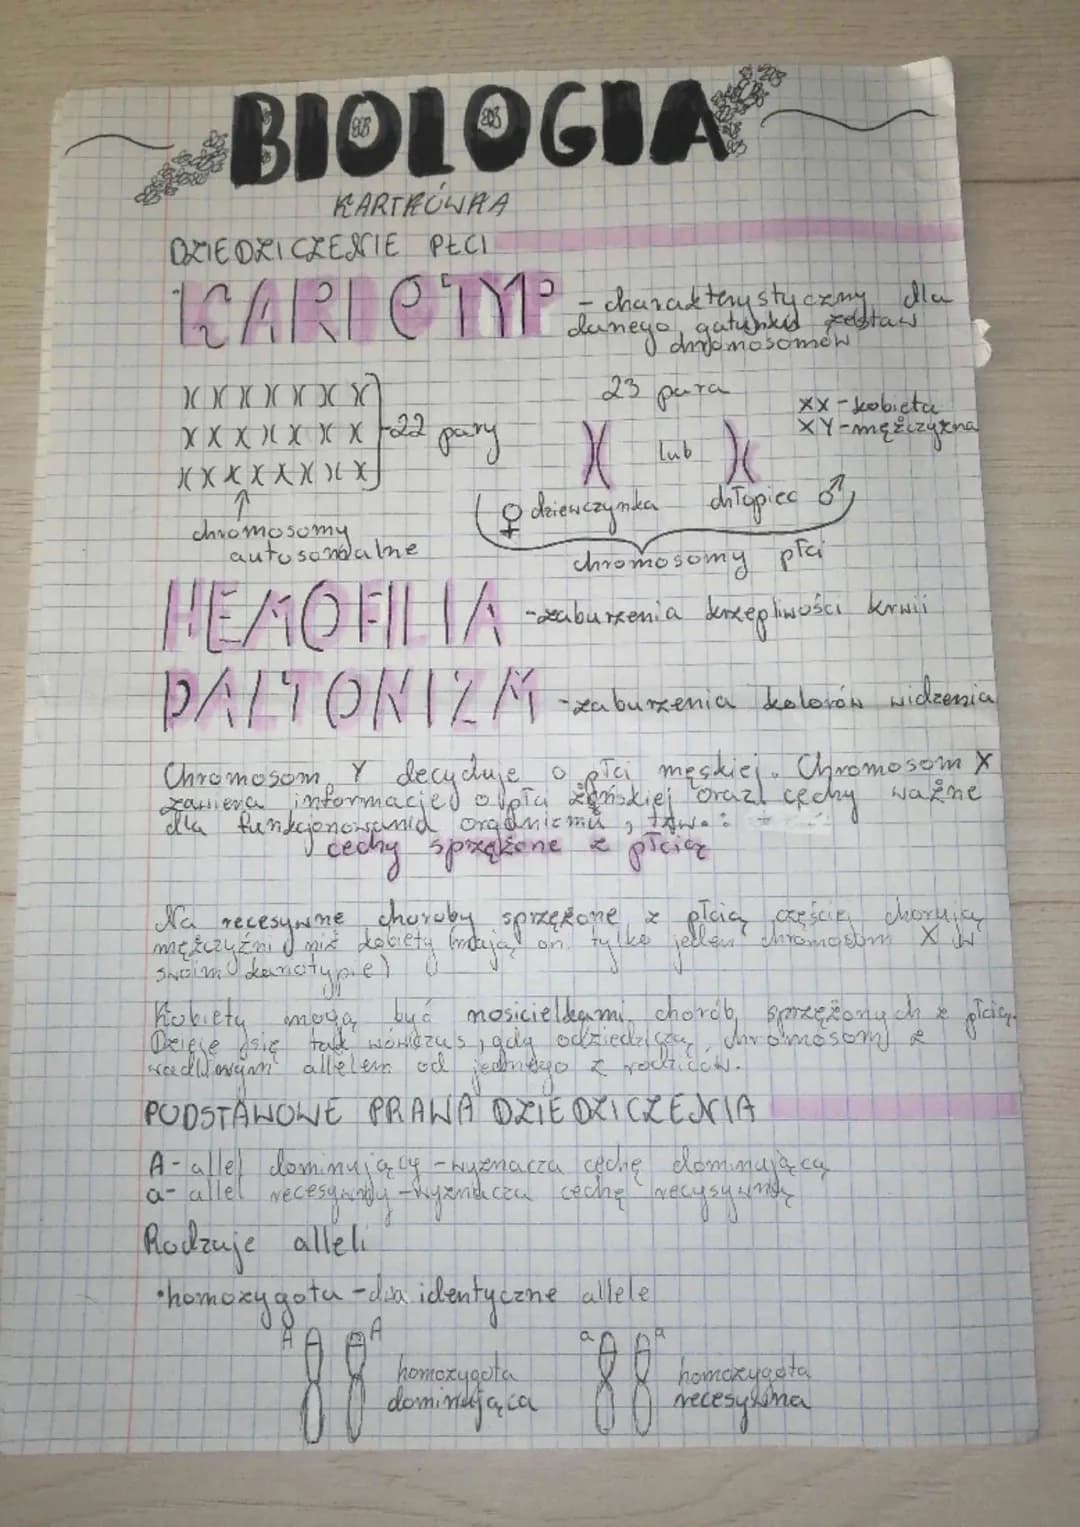 BIOLOGIA
KARTKÓWKA
DZIEDZICZENIE PŁCI
KARIOTYP - charakterystyczny dla
danego gatunku zestaw
chromosomów
22 pary
23 para
XX - kobieta
XY - mężczyzna
lub
♀ dziewczynka chłopiec ♂
chromosomy
autosomalne
chromosomy płci
HEMOFILIA - zaburzenia krzepliwości krwii
DALTONIZM - zaburzenia kolorów widzenia
Chromosom Y decyduje o płci męskiej. Chromosom X
zawiera informacje o płci żeńskiej oraz cechy ważne
dla funkcjonowania organizmu, tzw.:
cechy sprzężone z płcią
Na recesywne choroby sprzężone z płcią częściej chorują
mężczyźni niż kobiety (mają on. tylko jeden chromosom X w
swoim kariotypie)
Kobiety mogą być nosicielkami chorób sprzężonych z płcią.
Dzieje się tak wówczas, gdy odziedziczą chromosom z
wadliwym allelem od jednego z rodziców.
PODSTAWOWE PRAWA DZIEDZICZENIA
A - allel dominujący - wyznacza cechę dominującą
a - allel recesywny - wyznacza cechę recysywną
Rodzaje alleli
• homozygota - dwa identyczne allele
A A
homozygota
dominująca
a a
homozygota
recesywna